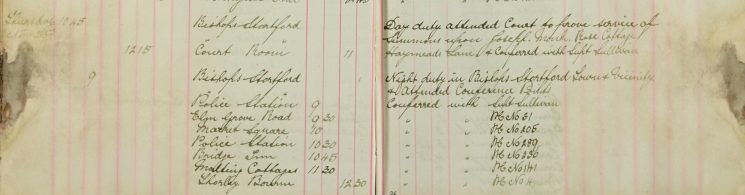 Thursday 10 45 Bishops Stortford Day duty attended Court to prove service of
Nov 25th Summons upon Joseph Rose Cottage
12 15 "Court Room" 11 Haymeads Lane & Conferred with Supt Sullivan
9 Bishops Stortford Night duty in Bishops Stortford Town & Vicinity
& Attended Conference Points
Police Station 9 Conferred with Supt Sullivan
Elm Grove Road 9 30 " " PC No 51
Market Square 10 " " PC No 205
Police Station 10 30 " " PC No 289
Bridge Inn 10 45 " " PC No 230
Malting Cottages 11 30 " " PC No 141
Thorley Bourne 12 30 " " PC No